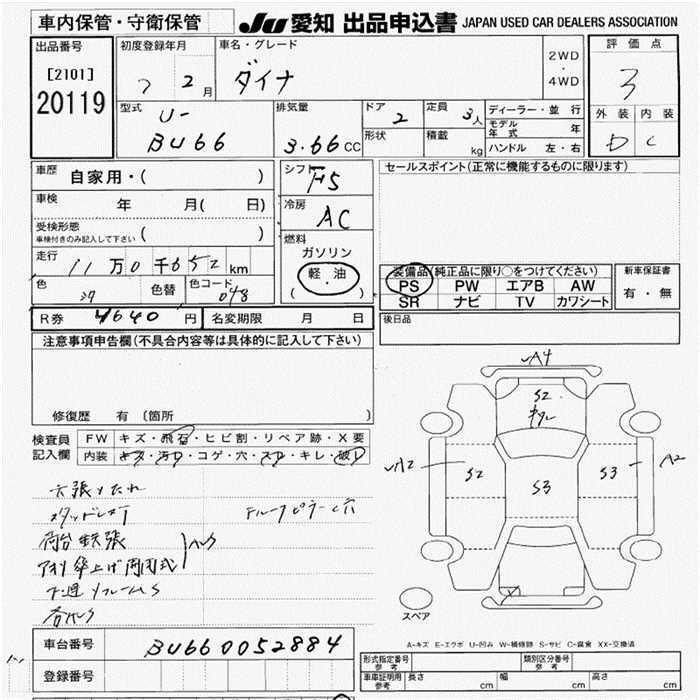 車内保管・守衛保管
JU 愛知 出品申込書 JAPAN USED CAR DEALERS ASSOCIATION
出品番号
[2101]
20119
初度登録年月
7 2月
車名・グレード
ダイナ
2WD
・
4WD
評価点
3
外装 内装
D C
型式
U-
BU66
排気量
3.66cc
ドア
2
定員
3人
形状
積載
kg
ディーラー・並行
モデル年式 年
ハンドル 左・右
車歴
自家用・( )
車検
年 月( 日)
受検形態
車検付きのみ記入して下さい ( )
走行
11万0千652km
色
色替
色コード
048
シフト
F5
冷房
AC
燃料
ガソリン
軽・油
( )
セールスポイント(正常に機能するものに限ります)
装備品(純正品に限り○をつけてください)
PS PW エアB AW
SR ナビ TV カワシート
新車保証書
有・無
R券 4640円
名変期限 月 日
後日品
注意事項申告欄(不具合内容等は具体的に記入して下さい)
修復歴 有〔箇所 〕
検査員記入欄
FW キズ・飛石・ヒビ割・リペア跡・X要
内装 キズ・汚れ・コゲ・穴・スレ・キレ・破れ
A4
S2
A2
S2
S3
S3
A2
スペア
A-キズ E-エクボ U-凹み W-補修跡 S-サビ C-腐食 XX-交換済
車台番号
BU660052884
登録番号
形式指定番号 参考
類別区分番号 参考
車庫証明用 参考
長さ cm
幅 cm
高さ cm